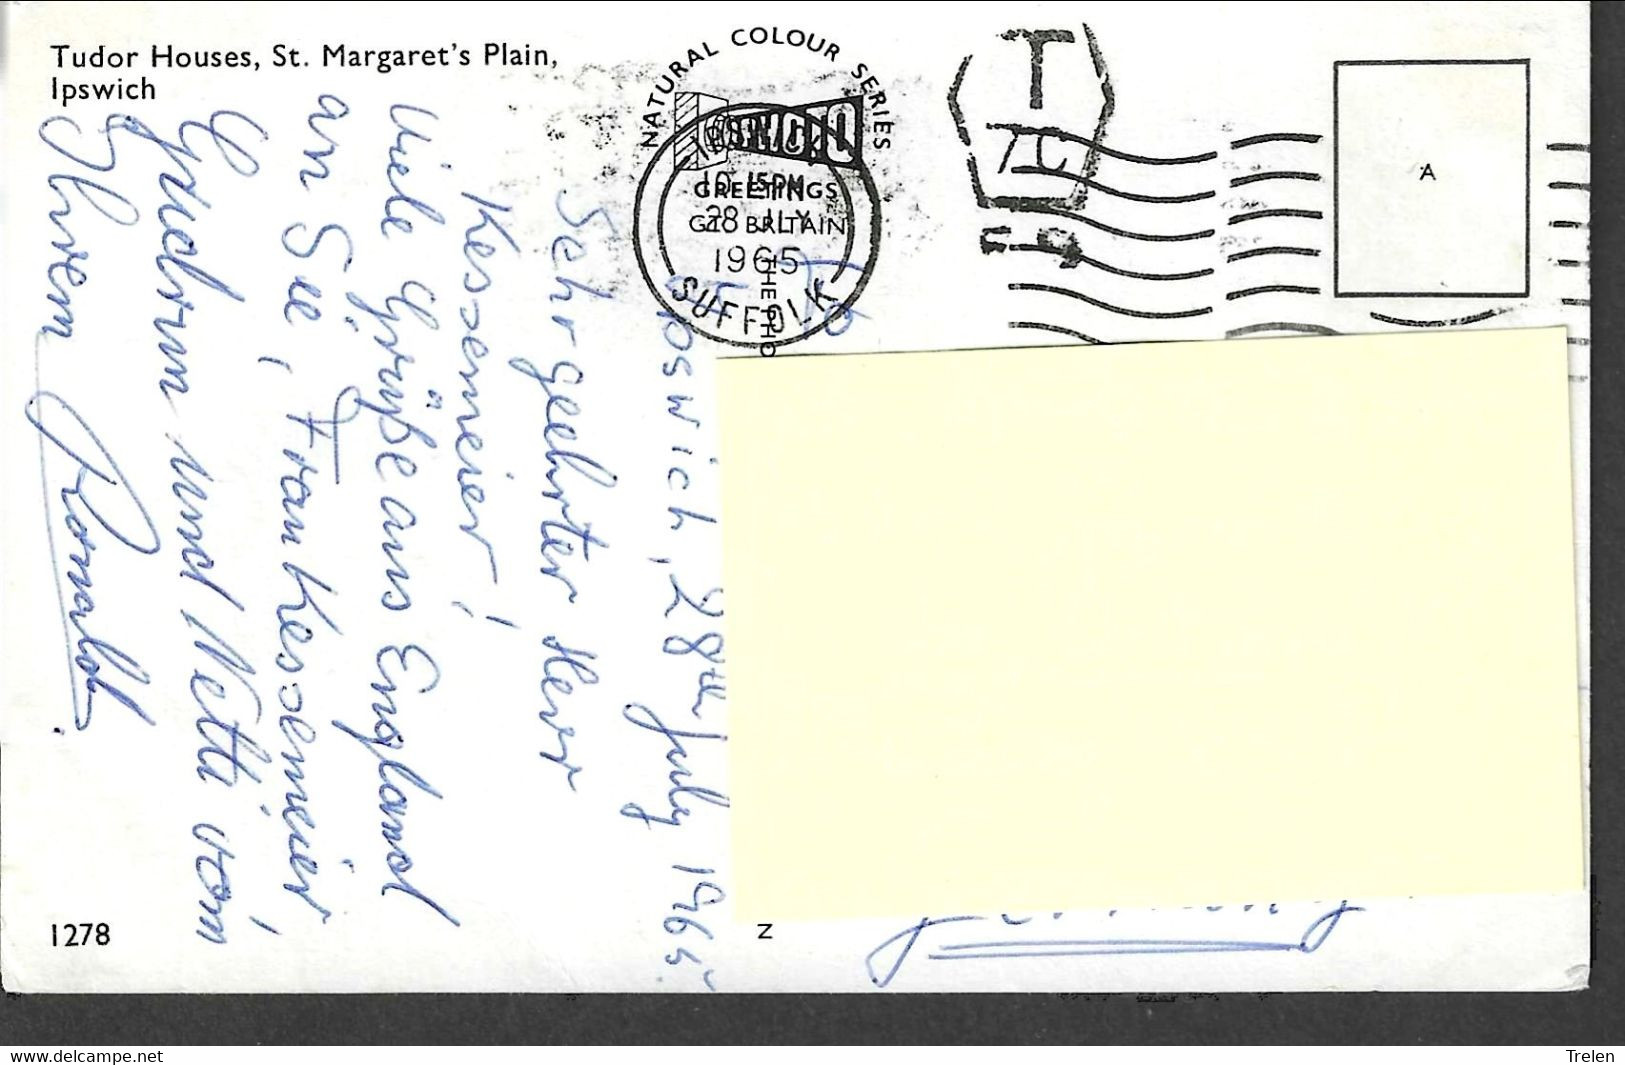 Tudor Houses, St. Margaret's Plain,
Ipswich
NATURAL COLOUR SERIES
GREETINGS
GT. BRITAIN
IPSWICH
10.15PM
28 JLY
1965
SUFFOLK
T
7C
A
To
Ipswich, 28th July 1965.
Sehr geehrter Herr
Kessemeier!
Viele Grüße aus England
an Sie, Frau Kessemeier,
Gudrun und Netti vom
Ihrem Ronald.
1278
Z
www.delcampe.net
Trelen